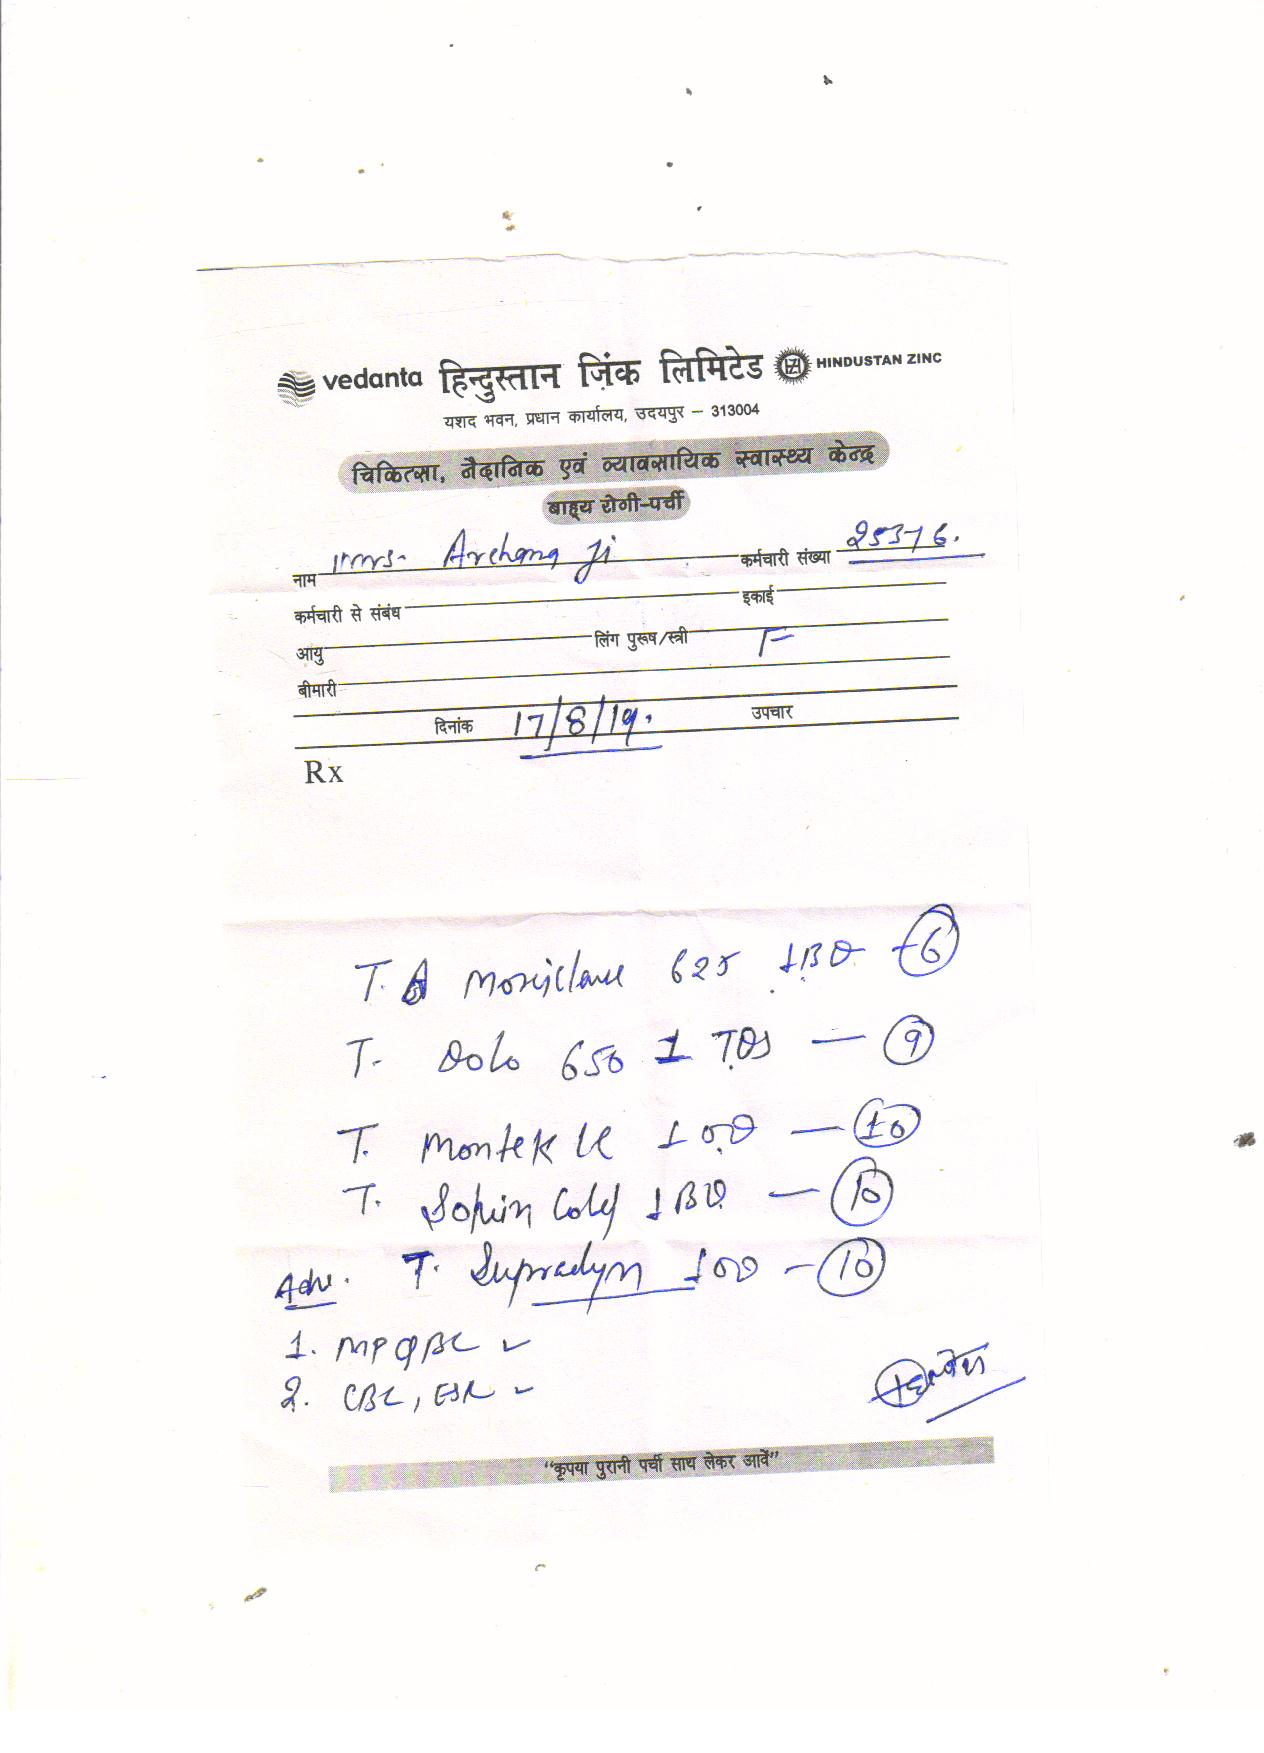 vedanta हिन्दुस्तान ज़िंक लिमिटेड HZL HINDUSTAN ZINC
यशद भवन, प्रधान कार्यालय, उदयपुर – 313004
चिकित्सा, नैदानिक एवं व्यावसायिक स्वास्थ्य केन्द्र
बाह्य रोगी-पर्ची
नाम Mrs- Archana Ji कर्मचारी संख्या 25376.
कर्मचारी से संबंध इकाई
आयु लिंग पुरूष/स्त्री F
बीमारी
दिनांक 17/8/19. उपचार
Rx
T. Moxiclave 625 1 BD – 6
T. Dolo 650 1 TDS — 9
T. Montek LC 1 OD — 10
T. Cold 1 BD — 10
Adv. T. Supradyn 1 OD – 10
1. MP QBC ✓
2. CBC, ESR ✓
“कृपया पुरानी पर्ची साथ लेकर आवें”